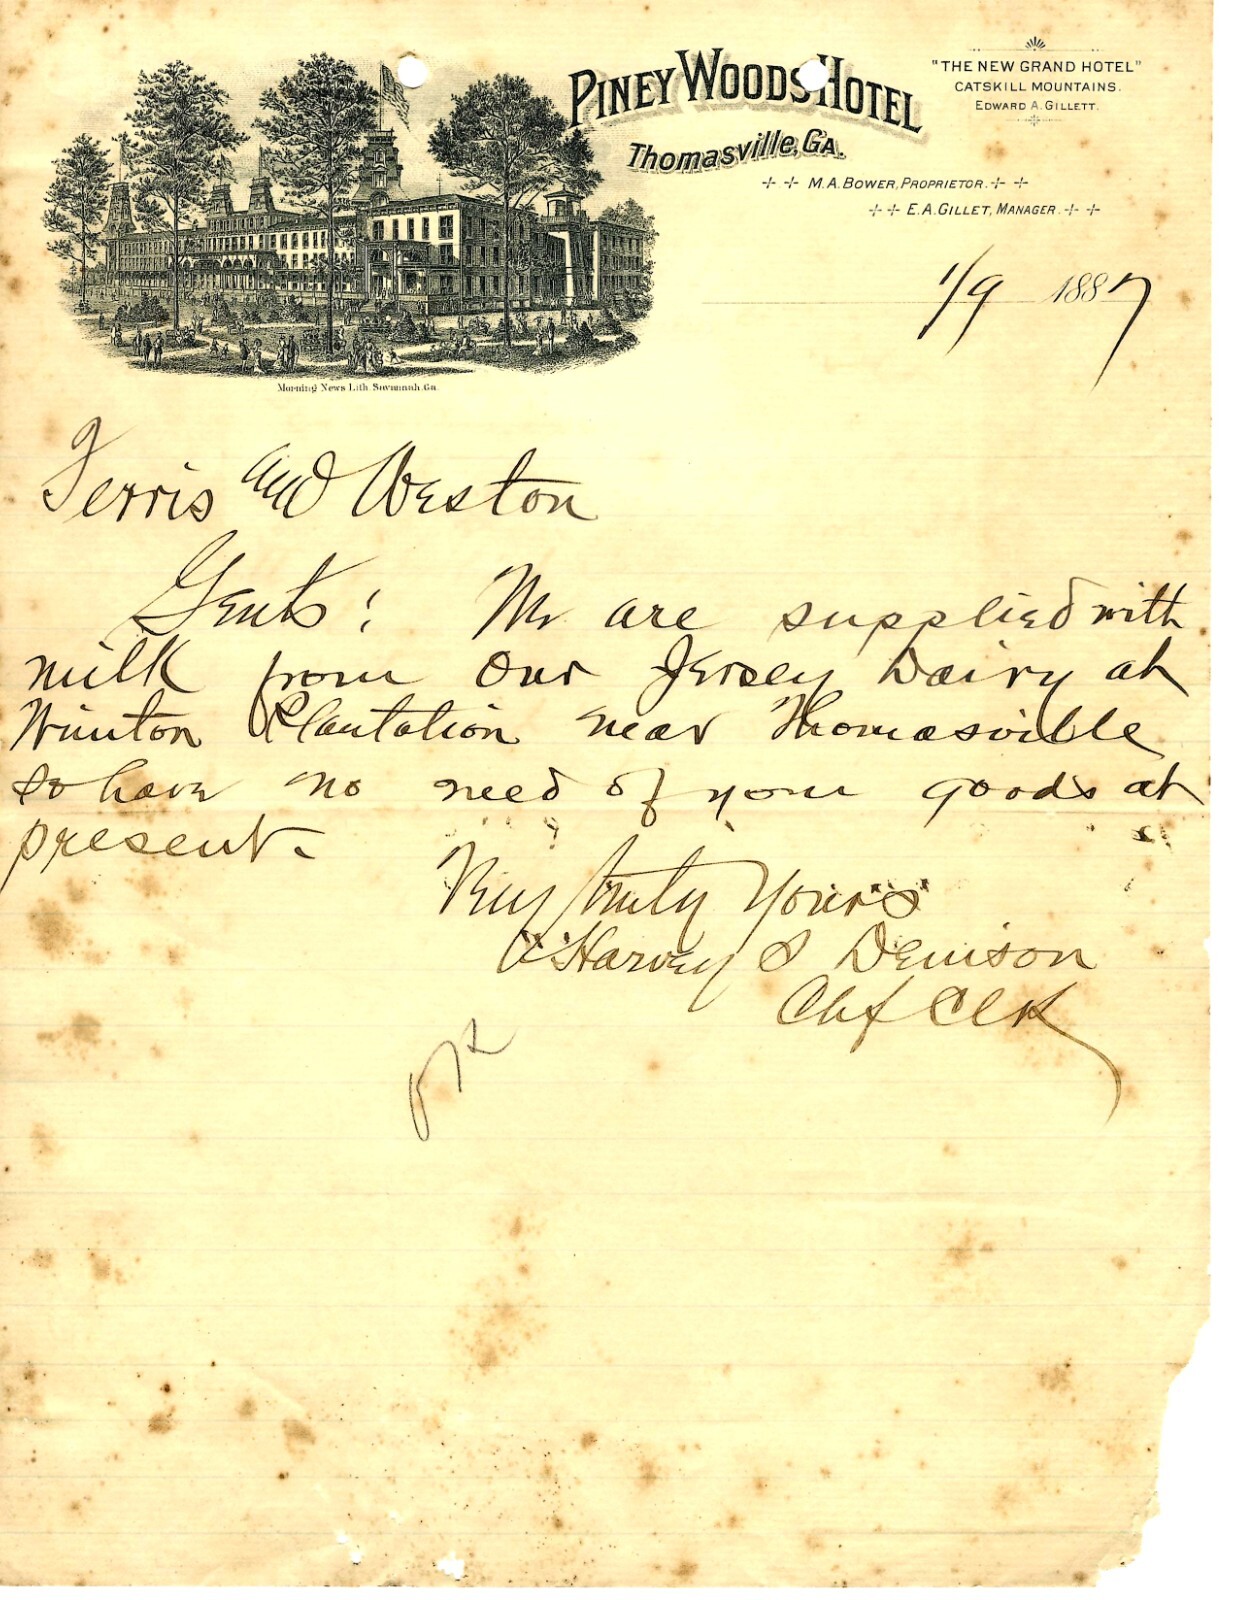 PINEY WOODS HOTEL
Thomasville, GA.
M. A. BOWER, PROPRIETOR.
E. A. GILLET, MANAGER.
"THE NEW GRAND HOTEL"
CATSKILL MOUNTAINS.
EDWARD A. GILLETT.
1/9 1887
Morning News Lith. Savannah, Ga.
Ferris and Weston
Gents: We are supplied with
milk from our Jersey Dairy at
Winton Plantation near Thomasville
so have no need of your goods at
present.
Very truly Yours
Harvey S Denison
Chf Clk
OK